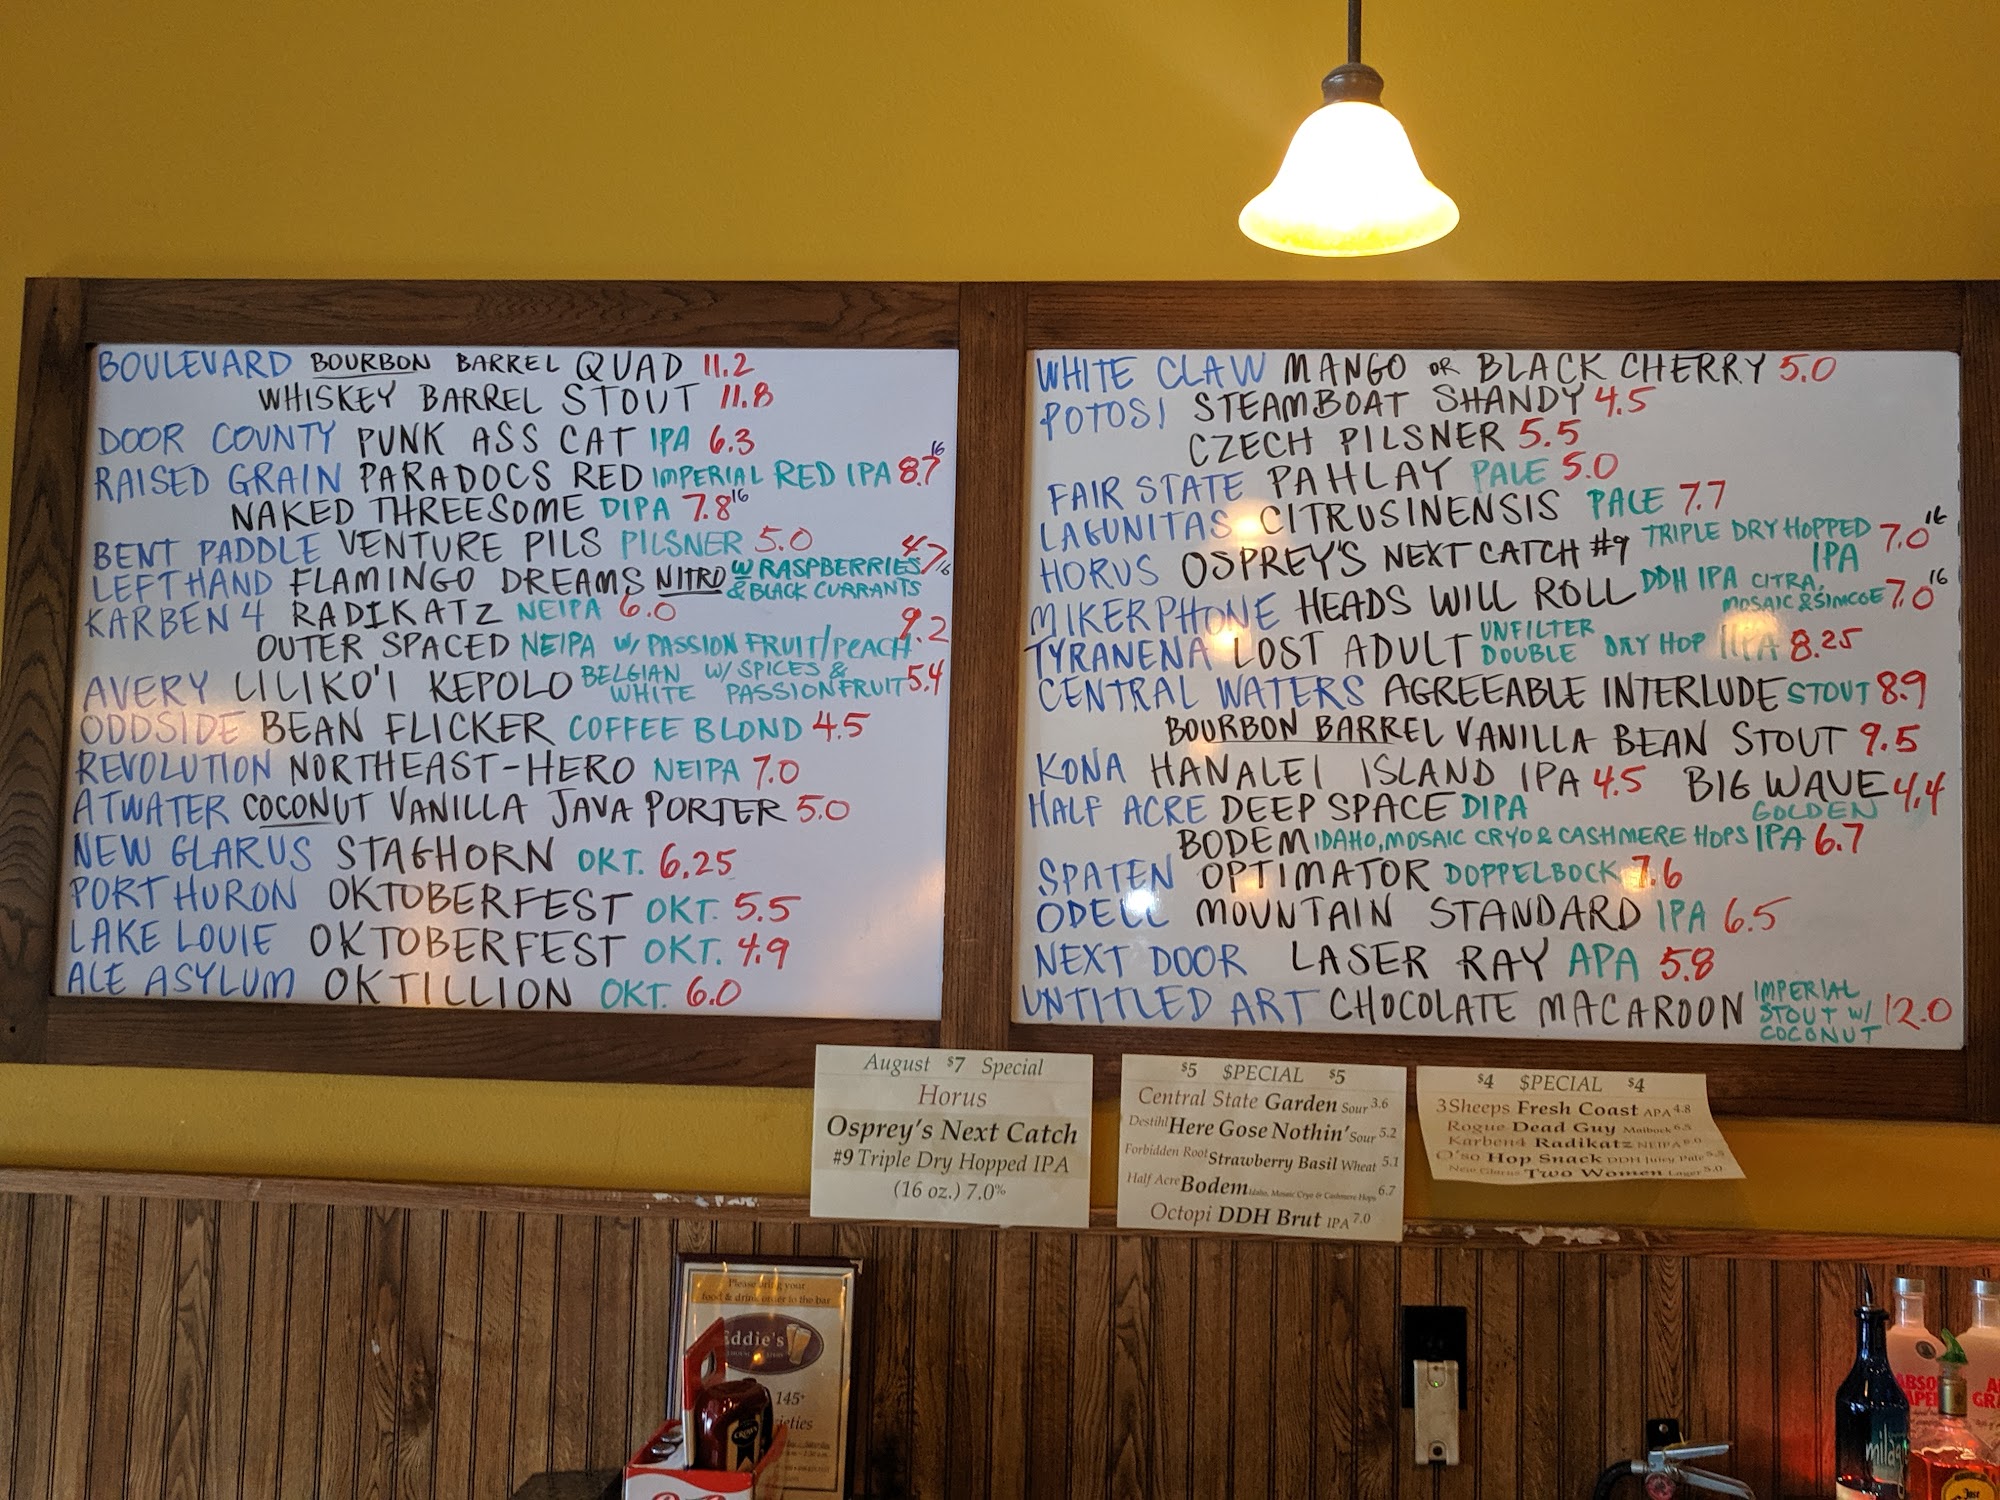 BOULEVARD BOURBON BARREL QUAD 11.2
WHISKEY BARREL STOUT 11.8
DOOR COUNTY PUNK ASS CAT IPA 6.3
RAISED GRAIN PARADOCS RED IMPERIAL RED IPA 8.7 16
NAKED THREESOME DIPA 7.8 16
BENT PADDLE VENTURE PILS PILSNER 5.0
LEFTHAND FLAMINGO DREAMS NITRO W/ RASPBERRIES 4.7 16
& BLACK CURRANTS
KARBEN 4 RADIKATZ NEIPA 6.0
OUTER SPACED NEIPA W/ PASSION FRUIT/PEACH 9.2
AVERY LILIKO'I KEPOLO BELGIAN W/ SPICES &
WHITE PASSIONFRUIT 5.4
ODDSIDE BEAN FLICKER COFFEE BLOND 4.5
REVOLUTION NORTHEAST-HERO NEIPA 7.0
ATWATER COCONUT VANILLA JAVA PORTER 5.0
NEW GLARUS STAGHORN OKT. 6.25
PORT HURON OKTOBERFEST OKT. 5.5
LAKE LOUIE OKTOBERFEST OKT. 4.9
ALE ASYLUM OKTILLION OKT. 6.0
WHITE CLAW MANGO OR BLACK CHERRY 5.0
POTOSI STEAMBOAT SHANDY 4.5
CZECH PILSNER 5.5
FAIR STATE PAHLAY PALE 5.0
LAGUNITAS CITRUSINENSIS PALE 7.7
HORUS OSPREY'S NEXT CATCH #9 TRIPLE DRY HOPPED 7.0 16
IPA
MIKERPHONE HEADS WILL ROLL DDH IPA CITRA,
MOSAIC & SIMCOE 7.0 16
TYRANENA LOST ADULT UNFILTER
DOUBLE DRY HOP IIPA 8.25
CENTRAL WATERS AGREEABLE INTERLUDE STOUT 8.9
BOURBON BARREL VANILLA BEAN STOUT 9.5
KONA HANALEI ISLAND IPA 4.5 BIG WAVE 4.4
GOLDEN
HALF ACRE DEEP SPACE DIPA
BODEM IDAHO, MOSAIC CRYO & CASHMERE HOPS IPA 6.7
SPATEN OPTIMATOR DOPPELBOCK 7.6
ODELL MOUNTAIN STANDARD IPA 6.5
NEXT DOOR LASER RAY APA 5.8
UNTITLED ART CHOCOLATE MACAROON IMPERIAL
STOUT W/ 12.0
COCONUT
August $7 Special
Horus
Osprey's Next Catch
#9 Triple Dry Hopped IPA
(16 oz.) 7.0%
$5 $PECIAL $5
Central State Garden Sour 3.6
Destihl Here Gose Nothin' Sour 5.2
Forbidden Root Strawberry Basil Wheat 5.1
Half Acre Bodem Idaho, Mosaic Cryo & Cashmere Hops 6.7
Octopi DDH Brut IPA 7.0
$4 $PECIAL $4
3Sheeps Fresh Coast APA 4.8
Rogue Dead Guy Maibock 6.5
Karben4 Radikatz NEIPA 6.0
O'so Hop Snack DDH Juicy Pale 5.5
New Glarus Two Women Lager 5.0
Please bring your
food & drink order to the bar
Eddie's
145+